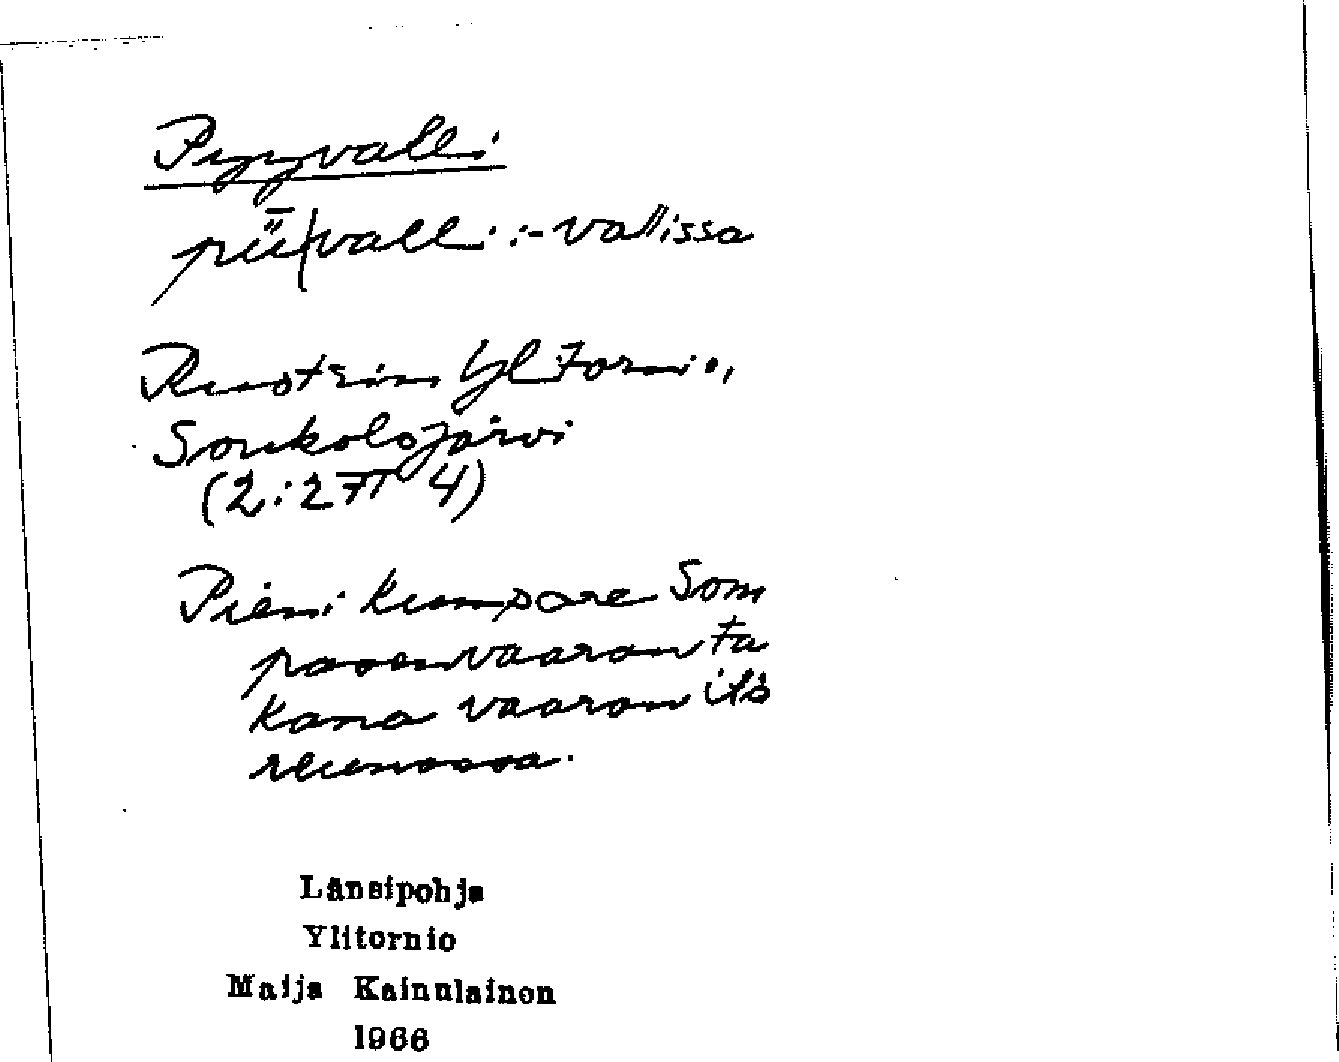 Pyyvalli
pǖ|valli : -vallissa
Ruotsin Ylitornio,
Soukolojärvi
(2:2 4)
Pieni kumpare Som
paoenvaaran ta
kana vaaran itä
reunassa.
Länsipohja
Ylitornio
Maija Kainulainen
1966